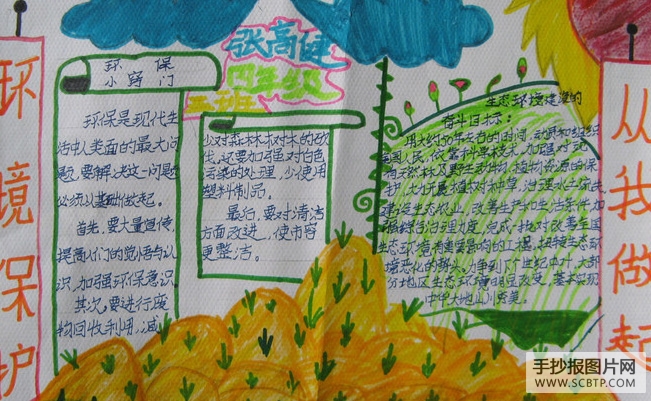 环境保护
张高健
四年级
五班
环保
小窍门
环保是现代生
活中人类面的最大问
题,要解决这一问题
必须从基础做起。
首先,要大量宣传,
提高人们的觉悟与认
识,加强环保意识。
其次,要进行废
物回收利用,减
少对森林树木的砍
伐,还要加强对白色
污染的处理,少使用
塑料制品。
最后,要对清洁
方面改进,使市容
更整洁。
生态环境建设的
奋斗目标:
用大约50年左右的时间,动员和组织
全国人民,依靠科学技术,加强对现
有天然林及野生动物植物资源的保
护,大力开展植树种草,治理水土流失
建设生态农业,改善生产和生活条件,加
综合治理力度,完成一批对改善全国
生态环境有重要影响的工程,扭转生态环
境恶化的势头。力争到下个世纪中叶,大部
分地区生态环境明显改变,基本实现
中华大地山川秀美。
从我做起
手抄报图片网
WWW.SCBTP.COM